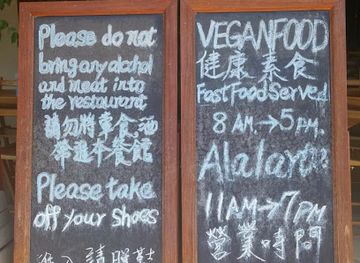 Please do not
bring any alcohol
and meat into
the restaurant
請勿將葷食,酒
帶進本餐館
Please take
off your Shoes
進入請脫鞋
VEGANFOOD
健康素食
Fast Food Served
8 AM.→5 PM.
Alalarte
11AM→7PM
營業時間